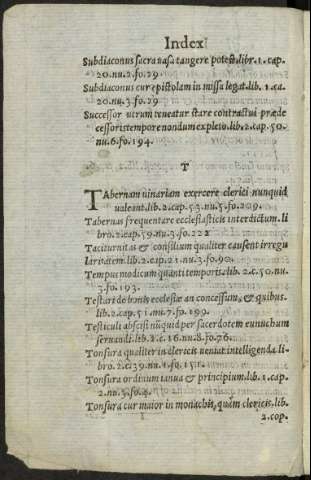 Index
Subdiaconus sacra uasa tangere potest. libr. 1. cap.
20. nu. 2. fo. 29.
Subdiaconus cur epistolam in missa legat. lib. 1. ca.
20. nu. 3. fo. 29.
Successor utrum teneatur stare contractui præde
cessoris tempore nondum expleto. lib. 2. cap. 50.
nu. 6. fo. 194.
T
TAbernam uinariam exercere clerici nunquid
ualeant. lib. 2. cap. 53. nu. 5. fo. 209.
Tabernas frequentare ecclesiasticis interdictum. li
bro. 2. cap. 59. nu. 3. fo. 222
Taciturnitas & consilium qualiter causent irregu
laritatem. lib. 2. cap. 21. nu. 3. fo. 90.
Tempus modicum quanti temporis. lib. 2. c. 50. nu.
3. fo. 193.
Testari de bonis ecclesiæ an concessum, & quibus.
lib. 2. cap. 51. nu. 7. fo. 199.
Testiculi abscisi nũquid per sacerdotem eunuchum
seruandi. lib. 2. c. 16. nu. 8. fo. 76.
Tonsura qualiter in clericis ueniat intelligenda li
bro. 2. c. 39. nu. 4. fo. 151.
Tonsura ordinum ianua & principium. lib. 1. cap.
2. nu. 5. fo. 4.
Tonsura cur maior in monachis, quàm clericis. lib.
2. cap.